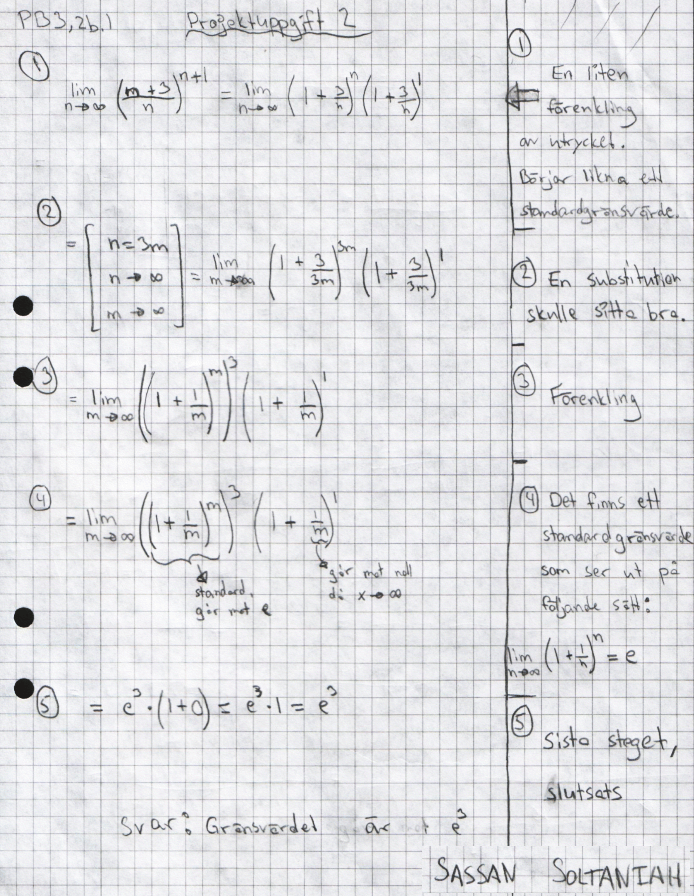 PB3,2b.1 Projektuppgift 2
①
lim n→∞ (m+3/n)^n+1 = lim n→∞ (1 + 3/n)^n (1 + 3/n)^1
②
= [n=3m n→∞ m→∞] = lim m→∞ (1 + 3/3m)^3m (1 + 3/3m)^1
③
= lim m→∞ ((1 + 1/m)^m)^3 (1 + 1/m)^1
④
= lim m→∞ ((1 + 1/m)^m)^3 (1 + 1/m)^1
standard.
går mot e
går mot noll
då x→∞
⑤ = e^3 · (1+0) = e^3 · 1 = e^3
Svar: Gränsvärdet är e^3
①
En liten
förenkling
av utrycket.
Börjar likna ett
standardgränsvärde.
② En substitution
skulle sitta bra.
③ Förenkling
④ Det finns ett
standardgränsvärde
som ser ut på
följande sätt:
lim n→∞ (1 + 1/n)^n = e
⑤
Sista steget,
slutsats
SASSAN SOLTANIAH